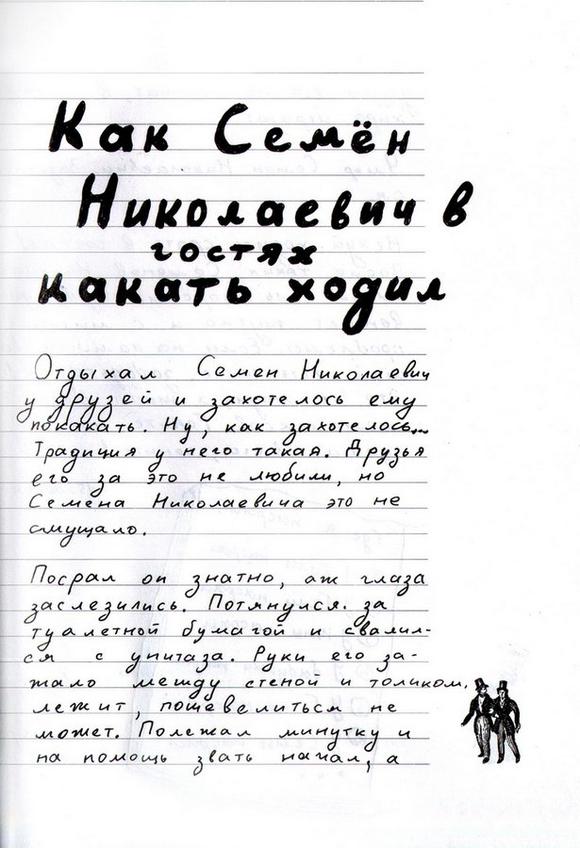 Как Семён
Николаевич в
гостях
какать ходил
Отдыхал Семен Николаевич
у друзей и захотелось ему
покакать. Ну, как захотелось...
Традиция у него такая. Друзья
его за это не любили, но
Семена Николаевича это не
смущало.
Посрал он знатно, аж глаза
заслезились. Потянулся за
туалетной бумагой и свалил-
ся с унитаза. Руки его за-
жало между стеной и толиком,
лежит, пошевелиться не
может. Полежал минутку и
на помощь звать начал, а